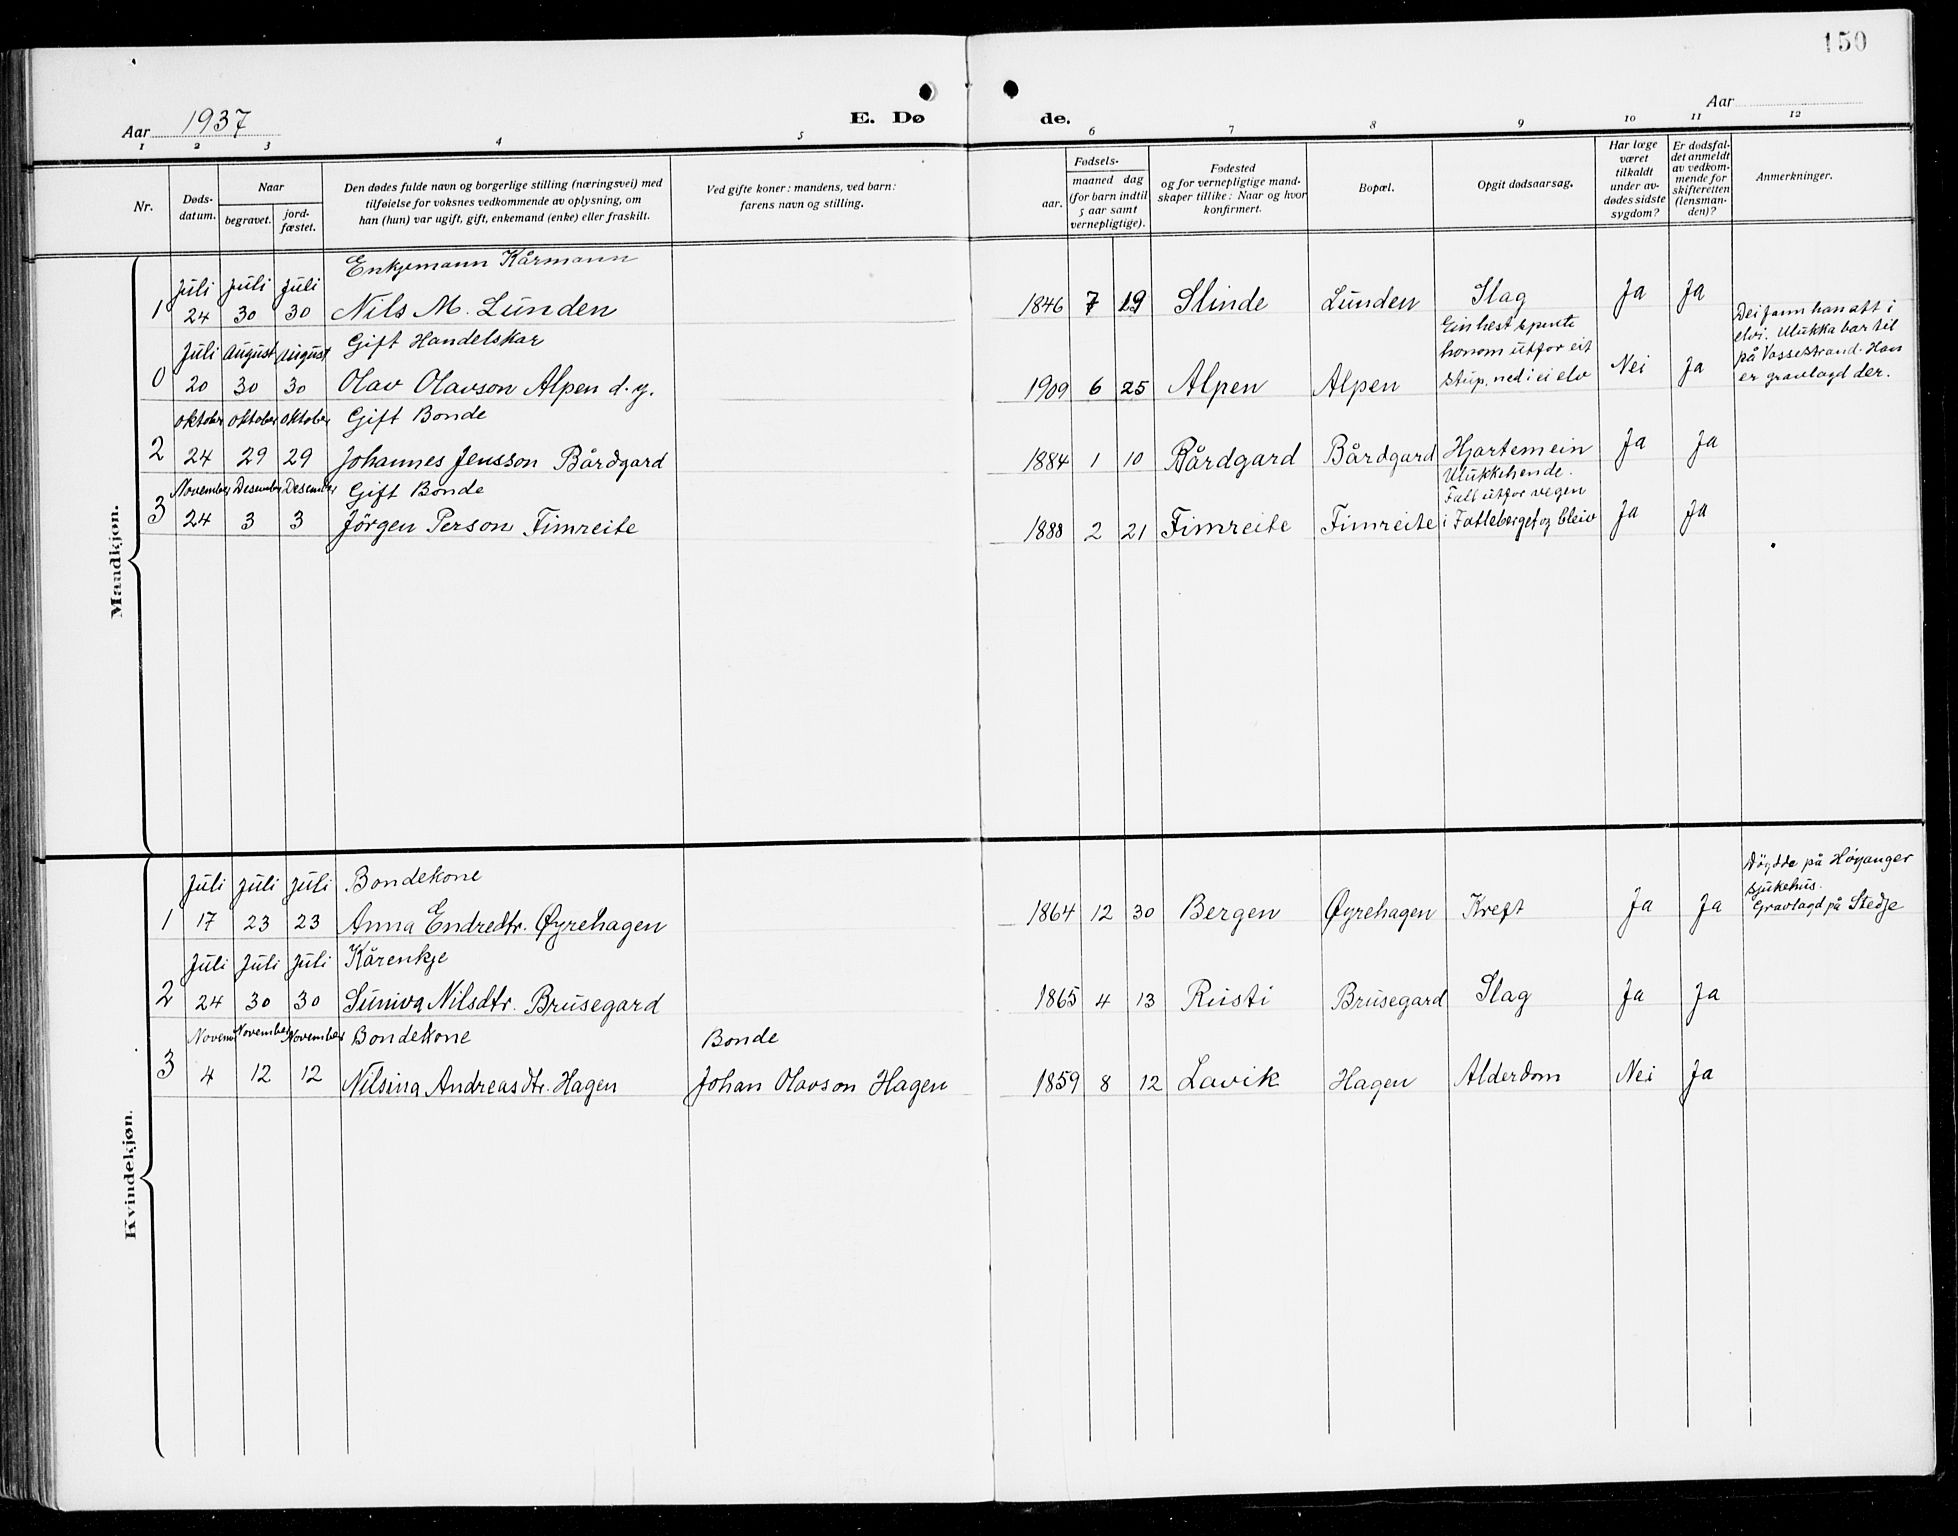 150
Aar 1937
E. Dø
de.
Aar
1 2 3 4 5 6 7 8 9 10 11 12
Nr.
Døds-
datum.
Naar
begravet.
jord-
fæstet.
Den dødes fulde navn og borgerlige stilling (næringsvei) med
tilføielse for voksnes vedkommende av oplysning, om
han (hun) var ugift, gift, enkemand (enke) eller fraskilt.
Ved gifte koner: mandens, ved barn:
farens navn og stilling.
Fødsels-
aar.
maaned dag
(for barn indtil
5 aar samt
vernepligtige).
Fødested
og for vernepligtige mand-
skaper tillike: Naar og hvor
konfirmert.
Bopæl.
Opgit dødsaarsag.
Har læge
været
tilkaldt
under av-
dødes sidste
sygdom?
Er dødsfal-
det anmeldt
av vedkom-
mende for
skifteretten
(lensman-
den)?
Anmerkninger.
Mandkjøn.
Enkjemann Kårmann
Juli Juli Juli
1 24 30 30 Nils M. Lunden 1846 7 19 Slinde Lunden Slag Ja Ja
Gift Handelskar
Juli August August
0 20 30 30 Olav Olavson Alpen d.y. 1909 6 25 Alpen Alpen
Ein hest spente
honom utfor eit
stup, ned i ei elv
Nei Ja
Dei fann han att i
elvi. Ulukka bar til
på Vossestrand. Han
er gravlagd der.
Oktober Oktober Oktober Gift Bonde
2 24 29 29 Johannes Jensson Bårdgard 1884 1 10 Bårdgard Bårdgard Hjartemein Ja Ja
November Desember Desember Gift Bonde
3 24 3 3 Jörgen Person Fimreite 1888 2 21 Fimreite Fimreite
Ulukkehende.
Fall utfor vegen
i Fatleberget og bleiv
Ja Ja
Kvindekjøn.
Juli Juli Juli Bondekone
1 17 23 23 Anna Endredtr. Øyrehagen 1864 12 30 Bergen Øyrehagen Kreft Ja Ja
Döydde på Høyanger
sjukehus.
Gravlagd på Stedje
Juli Juli Juli Kårenkje
2 24 30 30 Suniva Nilsdtr. Brusegard 1865 4 13 Rusti Brusegard Slag Ja Ja
Novem November November Bondekone Bonde
3 4 12 12 Nilsina Andreasdtr. Hagen Johan Olavson Hagen 1859 8 12 Lavik Hagen Alderdom Nei Ja